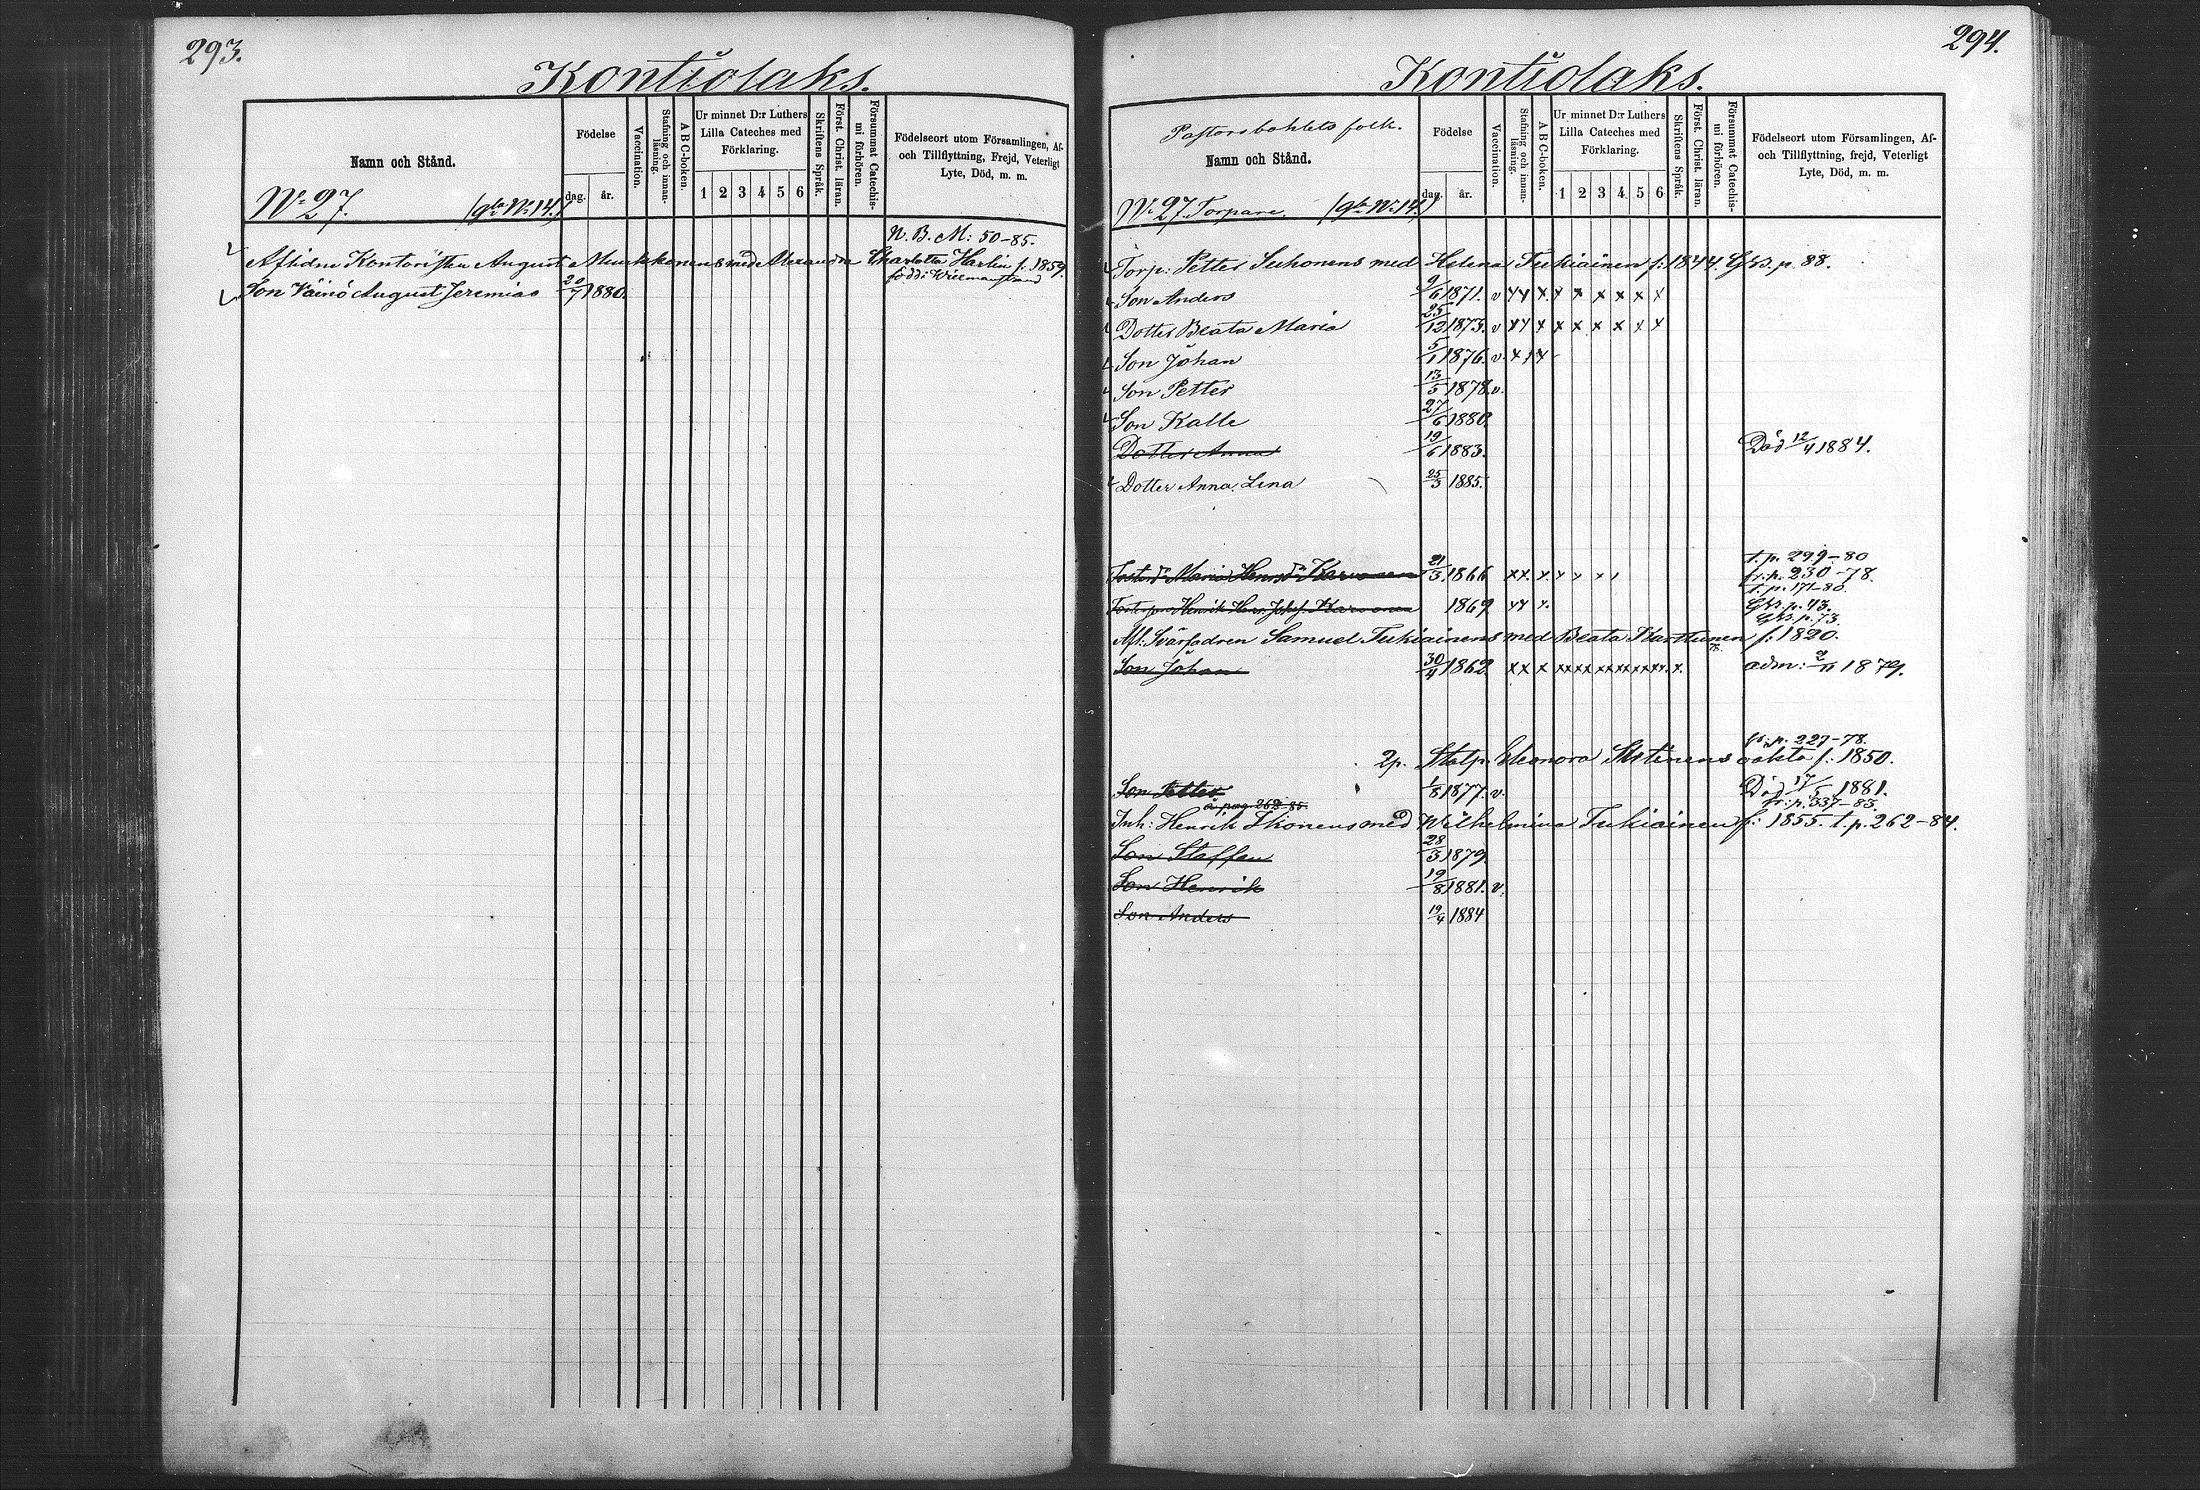 293.
Kontiolaks.
Namn och Stånd.
Födelse
dag. år.
Vaccination.
Stafning och innan-läsning.
A B C-boken.
Ur minnet D:r Luthers
Lilla Cateches med
Förklaring.
1 2 3 4 5 6
Skriftens Språk.
Först. Christ. läran.
Försummat Catechis-mi förhören.
Födelseort utom Församlingen, Af-
och Tillflyttning, Frejd, Veterligt
Lyte, Död, m. m.
No 27. (gla No 14.)
N. B. M: 50-85.
Aflidne Kontoristen August Munkkonens med Alexandra Charlotta Harlin f. 1859.
Son Väinö August Jeremias 20/7 1880.
294.
Kontiolaks.
Pastorsbohlets folk.
Namn och Stånd.
Födelse
dag. år.
Vaccination.
Stafning och innan-läsning.
A B C-boken.
Ur minnet D:r Luthers
Lilla Cateches med
Förklaring.
1 2 3 4 5 6
Skriftens Språk.
Först. Christ. läran.
Försummat Catechis-mi förhören.
Födelseort utom Församlingen, Af-
och Tillflyttning, frejd, Veterligt
Lyte, Död, m. m.
No 27. Torpare. (gla No 14.)
Torp: Petter Suhonens med Helena Tukiainen f: 1844. Gkb. p. 88.
Son Anders 9/6 1871. v xx x x x x x x x
Dotter Beata Maria 25/12 1873. v xx x x x x x x x
Son Johan 5/1 1876. v. x x x
Son Petter 13/5 1878. v.
Son Kalle 27/6 1880.
Dotter Anna 19/6 1883. Död 12/4 1884.
Dotter Anna Lina 25/3 1885.
t. p. 299-80
Maria Henrsdr Karvonen 21/3 1866 xx x x x x fr. p. 230-78.
t. p. 171-80.
Henrik Henr. Karvonen 1869 xx x. Gkb. p. 43.
Gkb. p. 73.
Afl. Svärfadren Samuel Tukiainens med Beata Karttunen f: 1820.
Son Johan 30/4 1862 xx x xxxx xxxxxxx. x. adm: 2/11 1879.
fr. p. 227-78.
2p. Eleonora f. 1850.
Son Petter 1/8 1877. v. Död 17/5 1881.
å pag. 262-85. fr. p. 337-83.
Inh: Henrik Ikonens med Wilhelmina Tukiainen f: 1855. t. p. 262-84.
Son Staffan 28/3 1879.
Son Henrik 19/8 1881. v.
Son Anders 19/4 1884